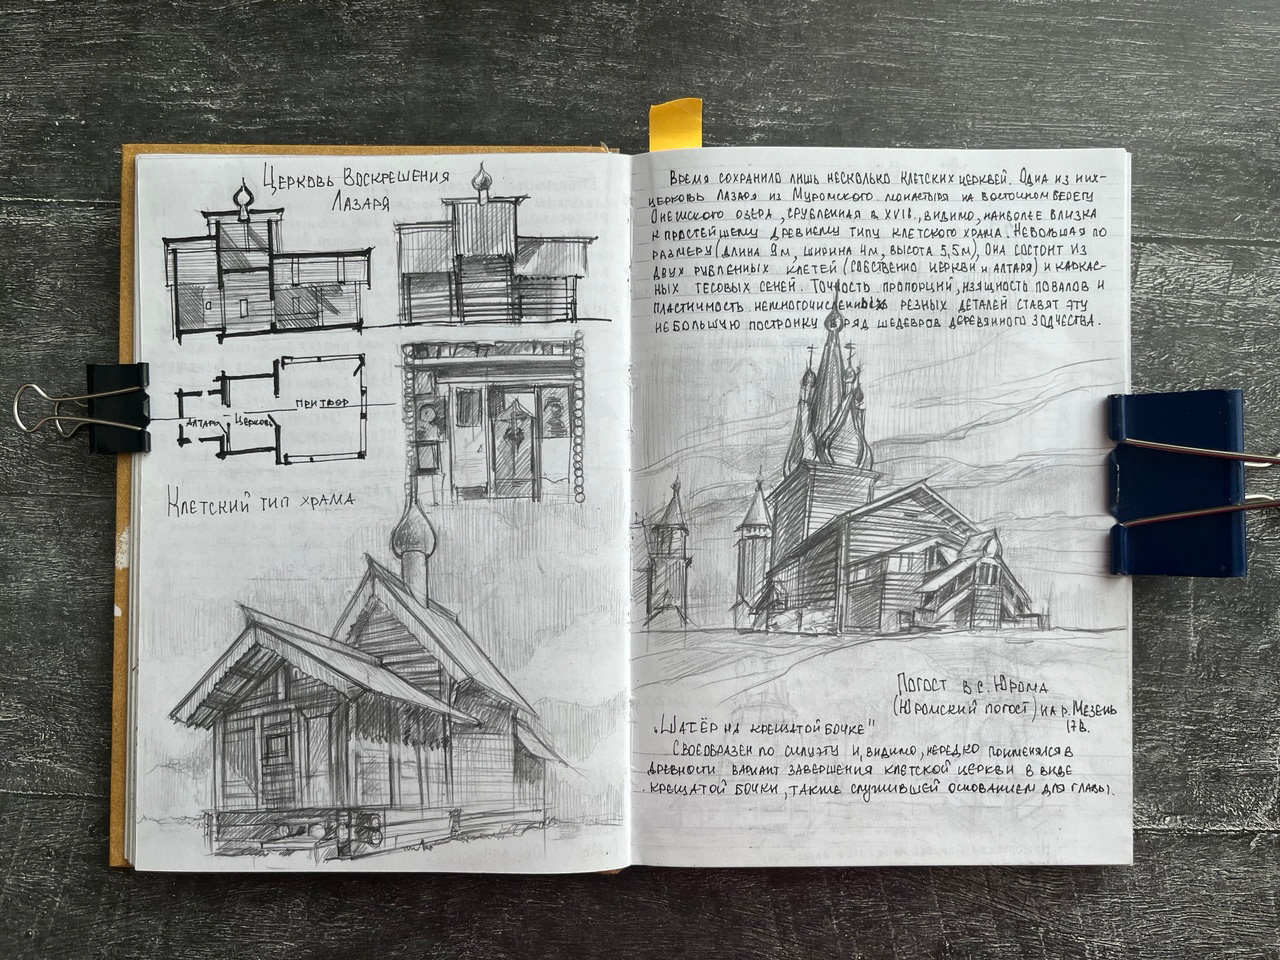 Церковь Воскрешения
Лазаря
Алтарь
Церковь
Притвор
Клетский тип храма
Время сохранило лишь несколько клетских церквей. Одна из них-
церковь Лазаря из Муромского монастыря на восточном берегу
Онежского озера, срубленная в XVI в., видимо, наиболее близка
к простейшему древнему типу клетского храма. Небольшая по
размеру (длина 9м, ширина 4м, высота 5,5м), она состоит из
двух рубленных клетей (собственно церкви и алтаря) и каркас-
ных тесовых сеней. Точность пропорций, изящность повалов и
пластичность немногочисленных резных деталей ставят эту
небольшую постройку в ряд шедевров деревянного зодчества.
Погост в с. Юрома
(Юромский погост) на р. Мезень
17в.
„Шатёр на крещатой бочке"
Своеобразен по силуэту и, видимо, нередко применялся в
древности вариант завершения клетской церкви в виде
крещатой бочки, также служившей основанием для главы.